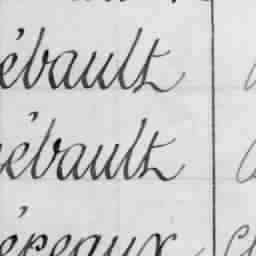 ébault
ébault
éreaux